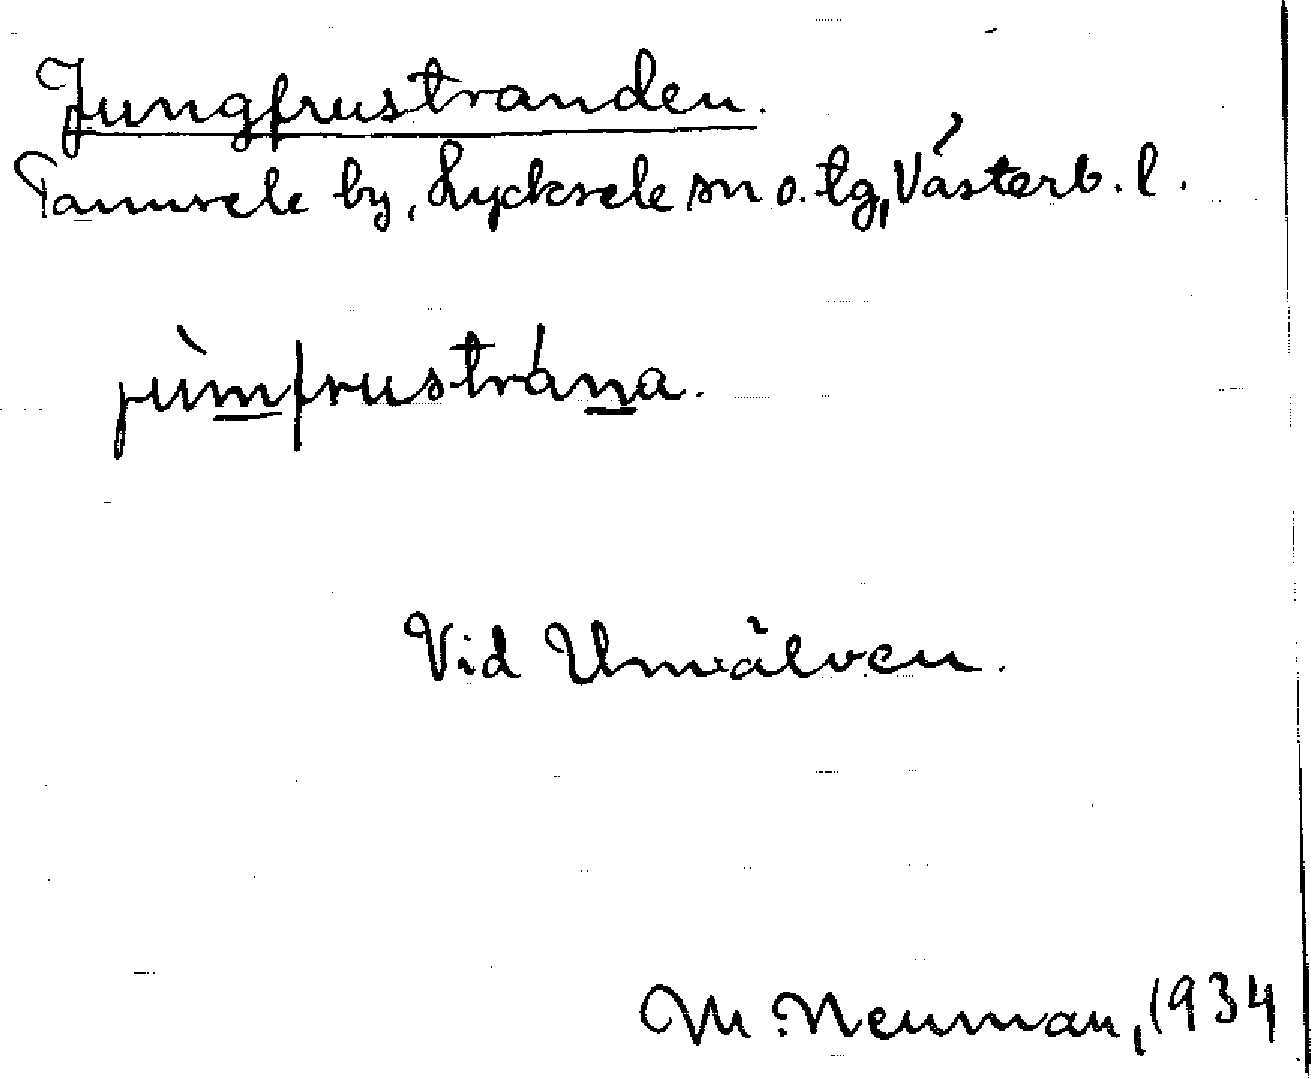 Jungfrustranden.
Tannsele by, Lycksele sn o. tg, Västerb. l.
jùmfrustrána.
Vid Umeälven.
M. Neuman, 1934